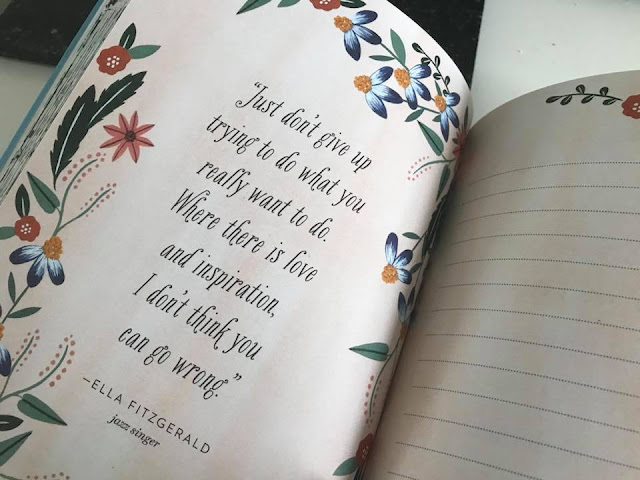 “Just don't give up
trying to do what you
really want to do.
Where there is love
and inspiration,
I don't think you
can go wrong.”
–ELLA FITZGERALD
jazz singer